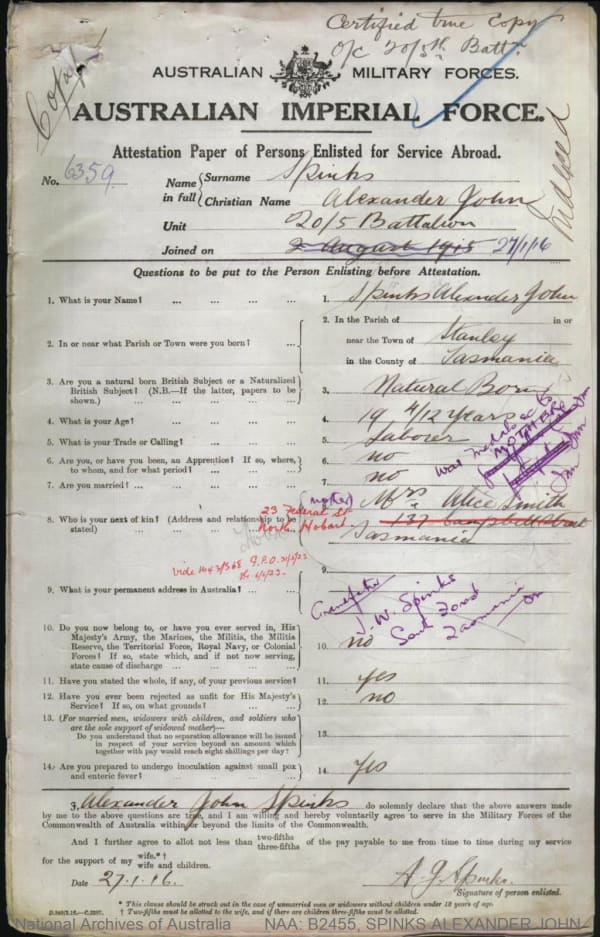 Certified true Copy
O/C 20/5th Batt.
Copy
AUSTRALIAN MILITARY FORCES.
AUSTRALIAN IMPERIAL FORCE.
Indexed
Attestation Paper of Persons Enlisted for Service Abroad.
No. 6359 Name in full { Surname Spinks
Christian Name Alexander John
Unit 20/5 Battalion
Joined on 2 August 1915 27/1/16
Questions to be put to the Person Enlisting before Attestation.
1. What is your Name? ... ... ... ... 1. Spinks Alexander John
2. In or near what Parish or Town were you born? ... 2. In the Parish of in or
near the Town of Stanley
in the County of Tasmania
3. Are you a natural born British Subject or a Naturalized
British Subject? (N.B.—If the latter, papers to be
shown.) ... ... ... ... 3. Natural Born
4. What is your Age? ... ... ... ... 4. 19 4/12 years
5. What is your Trade or Calling? ... ... ... 5. Laborer
6. Are you, or have you been, an Apprentice? If so, where,
to whom, and for what period? ... ... ... 6. no
7. Are you married? ... ... ... ... 7. no
War Medals &c to
MOTHER
8. Who is your next of kin? (Address and relationship to be
stated) ... ... 8. (mother) Mrs Alice Smith
137 Campbell Street
Tasmania
23 Federal St
North Hobart
9. What is your permanent address in Australia? ... 9.
Grandfather
J. W. Spinks
Tasmania
10. Do you now belong to, or have you ever served in, His
Majesty's Army, the Marines, the Militia, the Militia
Reserve, the Territorial Force, Royal Navy, or Colonial
Forces? If so, state which, and if not now serving,
state cause of discharge ... ... ... 10. no
11. Have you stated the whole, if any, of your previous service? 11. yes
12. Have you ever been rejected as unfit for His Majesty's
Service? If so, on what grounds? ... ... 12. no
13. (For married men, widowers with children, and soldiers who
are the sole support of widowed mother)—
Do you understand that no separation allowance will be issued
in respect of your service beyond an amount which
together with pay would reach eight shillings per day? 13.
14. Are you prepared to undergo inoculation against small pox
and enteric fever? ... ... ... ... 14. Yes
I, Alexander John Spinks do solemnly declare that the above answers made
by me to the above questions are true, and I am willing and hereby voluntarily agree to serve in the Military Forces of the
Commonwealth of Australia within or beyond the limits of the Commonwealth.
And I further agree to allot not less than two-fifths three-fifths of the pay payable to me from time to time during my service
for the support of my wife.*† wife and children.
Date 27.1.16. A. J. Spinks.
Signature of person enlisted.
* This clause should be struck out in the case of unmarried men or widowers without children under 18 years of age.
† Two-fifths must be allotted to the wife, and if there are children three-fifths must be allotted.
National Archives of Australia NAA: B2455, SPINKS ALEXANDER JOHN